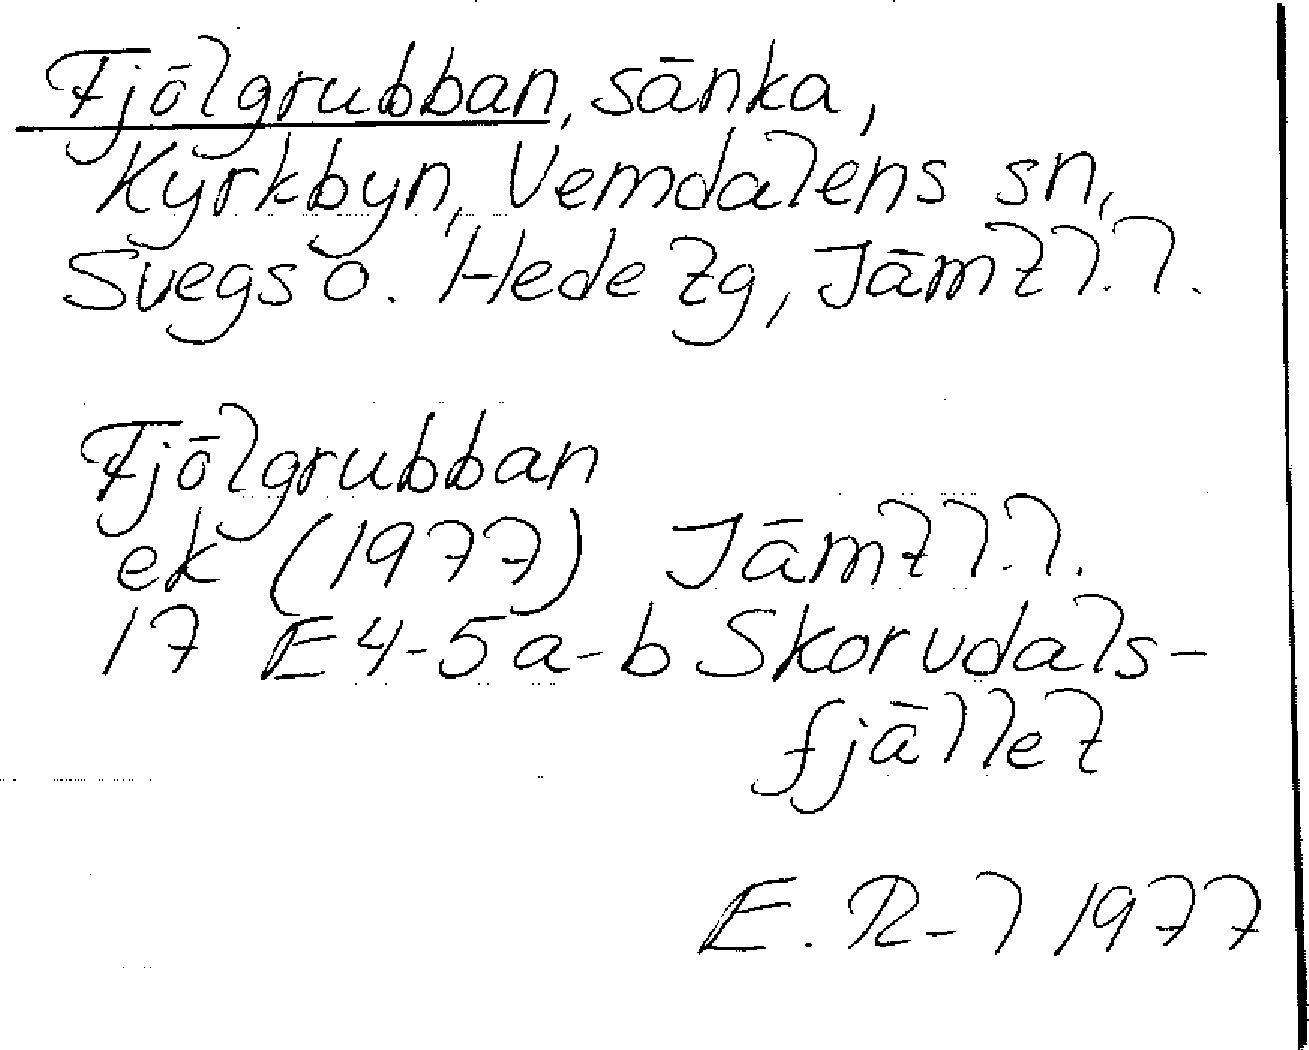 Fjölgrubban, sänka,
Kyrkbyn, Vemdalens sn,
Svegs o. Hede tg, Jämtl.l.
Fjölgrubban
ek (1977) Jämtl.l.
17 E 4-5 a-b Skorvdals-
fjället
E. R-l 1977